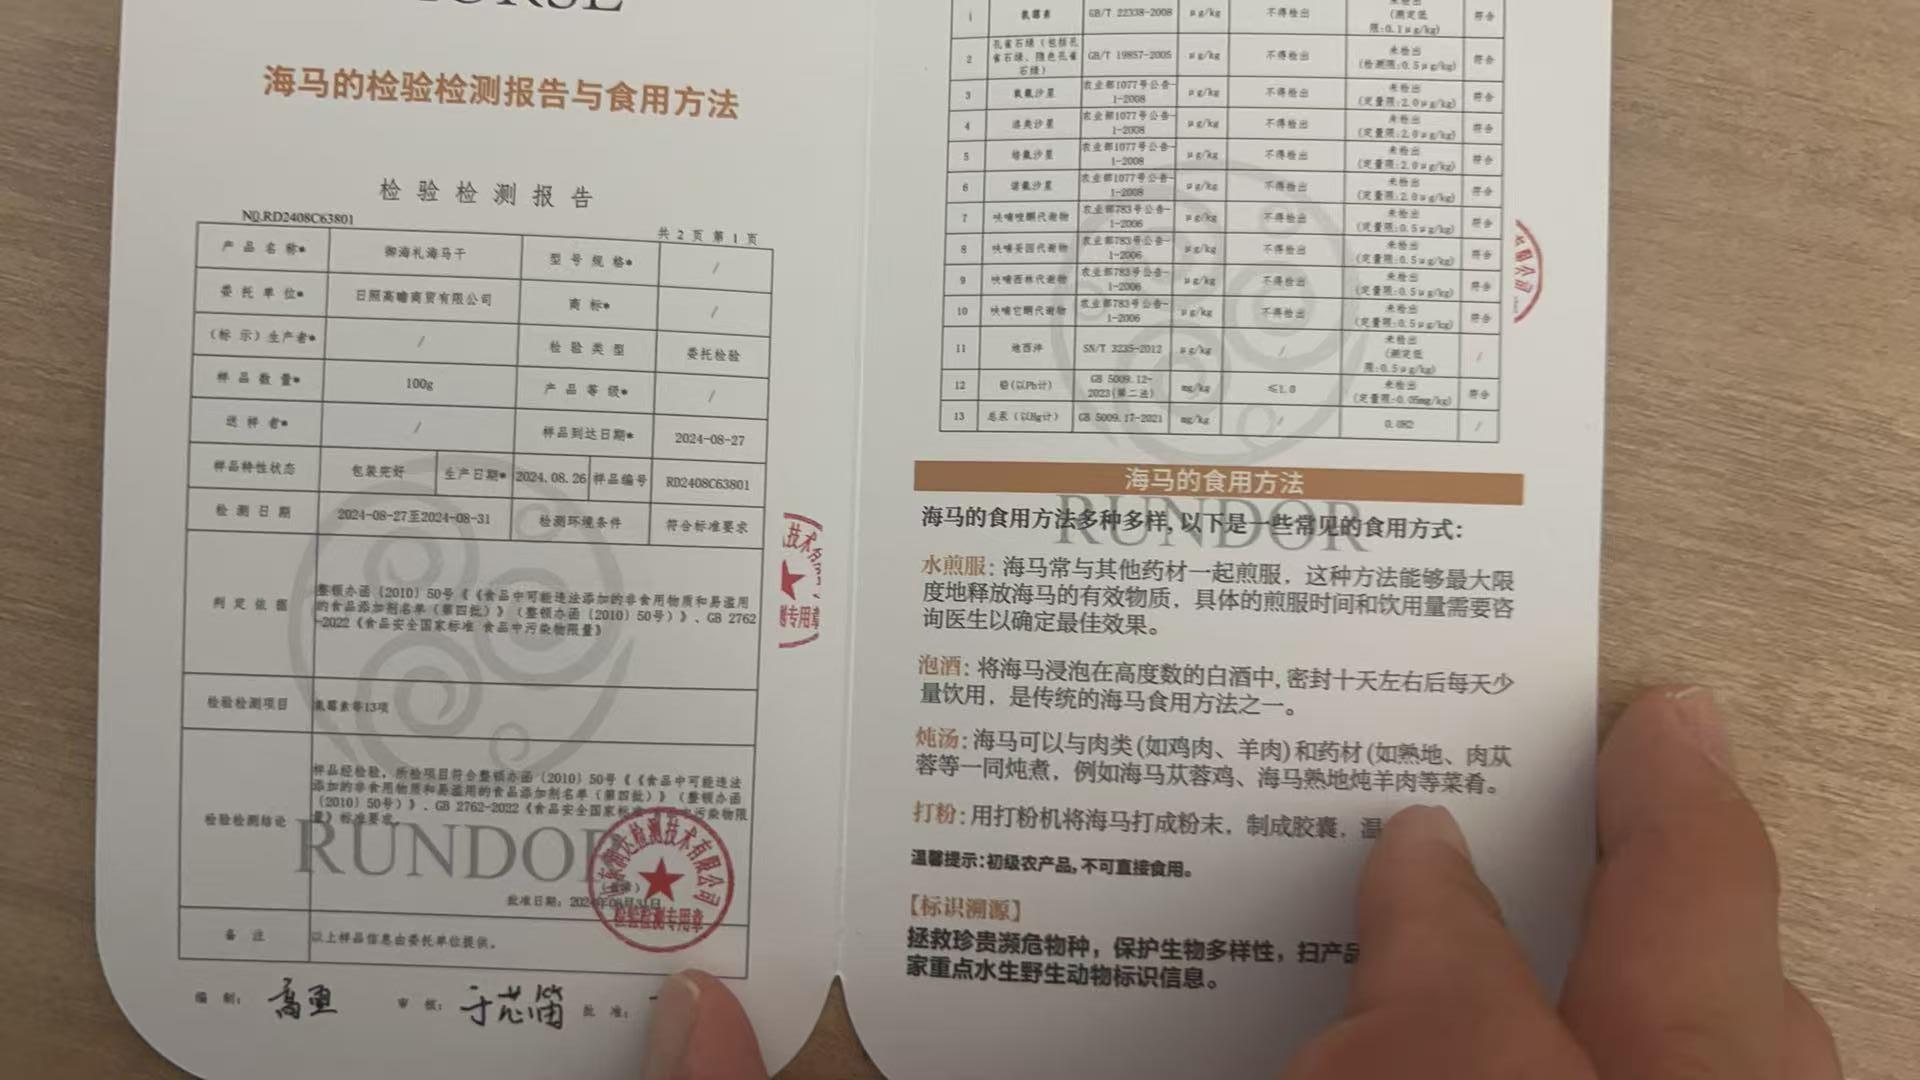 海马的检验检测报告与食用方法
检验检测报告
NO.RD2408C63801
共 2 页 第 1 页
产品名称* 御海礼海马干 型号规格* /
委托单位* 日照高瞻商贸有限公司 商标* /
(标示)生产者* / 检验类型 委托检验
样品数量* 100g 产品等级* /
送样者* / 样品到达日期* 2024-08-27
样品特性状态 包装完好 生产日期* 2024.08.26 样品编号 RD2408C63801
检测日期 2024-08-27至2024-08-31 检测环境条件 符合标准要求
判定依据
整顿办函〔2010〕50号《《食品中可能违法添加的非食用物质和易滥用
的食品添加剂名单(第四批)》(整顿办函〔2010〕50号)》、GB 2762
-2022《食品安全国家标准 食品中污染物限量》
检验检测项目 氯霉素等13项
检验检测结论
样品经检验,所检项目符合整顿办函〔2010〕50号《《食品中可能违法
添加的非食用物质和易滥用的食品添加剂名单(第四批)》(整顿办函
〔2010〕50号)》、GB 2762-2022《食品安全国家标 污染物限
量》标准要求。
RUNDOR
批准日期: 2024年08月31日
检测技术有限公司
检验检测专用章
备注 以上样品信息由委托单位提供。
编制: 审核: 批准:
技术
专用章
1 氯霉素 GB/T 22338-2008 μg/kg 不得检出 未检出 (测定低限:0.1μg/kg) 符合
2 孔雀石绿(包括孔雀石绿、隐色孔雀石绿) GB/T 19857-2005 μg/kg 不得检出 未检出 (检测限:0.5μg/kg) 符合
3 氧氟沙星 农业部1077号公告-1-2008 μg/kg 不得检出 未检出 (定量限:2.0μg/kg) 符合
4 洛美沙星 农业部1077号公告-1-2008 μg/kg 不得检出 未检出 (定量限:2.0μg/kg) 符合
5 培氟沙星 农业部1077号公告-1-2008 μg/kg 不得检出 未检出 (定量限:2.0μg/kg) 符合
6 诺氟沙星 农业部1077号公告-1-2008 μg/kg 不得检出 未检出 (定量限:2.0μg/kg) 符合
7 呋喃唑酮代谢物 农业部783号公告-1-2006 μg/kg 不得检出 未检出 (定量限:0.5μg/kg) 符合
8 呋喃妥因代谢物 农业部783号公告-1-2006 μg/kg 不得检出 未检出 (定量限:0.5μg/kg) 符合
9 呋喃西林代谢物 农业部783号公告-1-2006 μg/kg 不得检出 未检出 (定量限:0.5μg/kg) 符合
10 呋喃它酮代谢物 农业部783号公告-1-2006 μg/kg 不得检出 未检出 (定量限:0.5μg/kg) 符合
11 地西泮 SN/T 3235-2012 μg/kg / 未检出 (测定低限:0.5μg/kg) /
12 铅(以Pb计) GB 5009.12-2023(第二法) mg/kg ≤1.0 未检出 (定量限:0.05mg/kg) 符合
13 总汞(以Hg计) GB 5009.17-2021 mg/kg / 0.082 /
海马的食用方法
RUNDOR
海马的食用方法多种多样,以下是一些常见的食用方式:
水煎服:海马常与其他药材一起煎服,这种方法能够最大限
度地释放海马的有效物质,具体的煎服时间和饮用量需要咨
询医生以确定最佳效果。
泡酒:将海马浸泡在高度数的白酒中,密封十天左右后每天少
量饮用,是传统的海马食用方法之一。
炖汤:海马可以与肉类(如鸡肉、羊肉)和药材(如熟地、肉苁
蓉等一同炖煮,例如海马苁蓉鸡、海马熟地炖羊肉等菜肴。
打粉:用打粉机将海马打成粉末,制成胶囊,温
温馨提示:初级农产品,不可直接食用。
【标识溯源】
拯救珍贵濒危物种,保护生物多样性,扫产品
家重点水生野生动物标识信息。